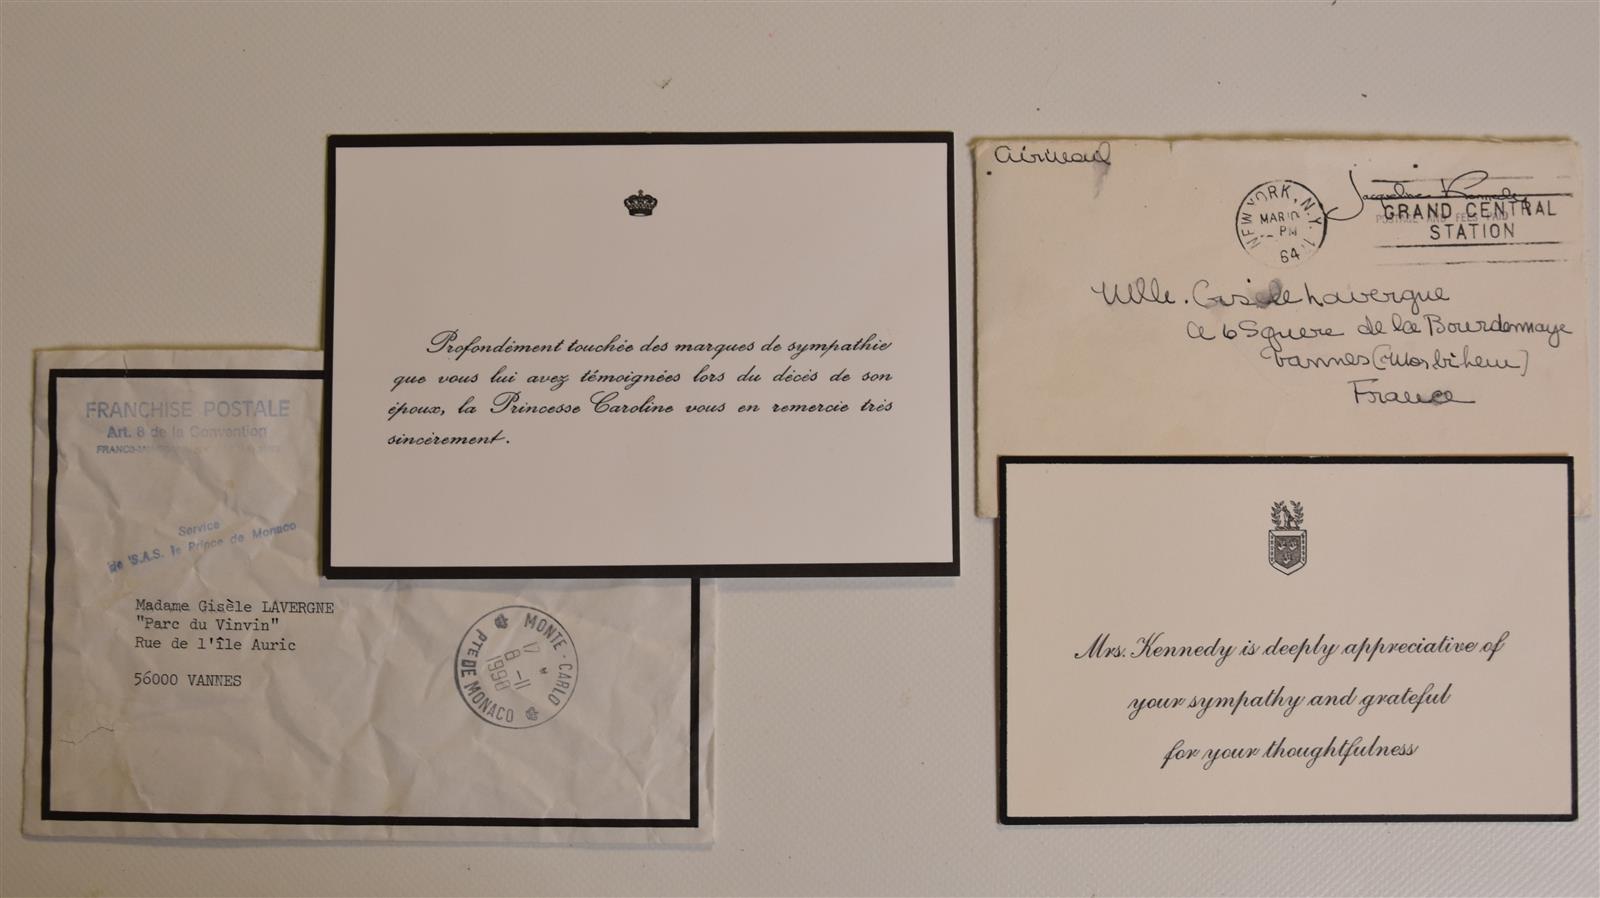 Profondément touchée des marques de sympathie
que vous lui avez témoignées lors du décès de son
époux, la Princesse Caroline vous en remercie très
sincèrement.
FRANCHISE POSTALE
Art. 8 de la Convention
Service
de S.A.S. le Prince de Monaco
Madame Gisèle LAVERGNE
"Parc du Vinvin"
Rue de l'île Auric
56000 VANNES
MONTE-CARLO
17
8-11
1990
PTE DE MONACO
airmail
NEW YORK, N.Y.
MAR
PM
64
Jacqueline Kennedy
POSTAGE AND FEES PAID
GRAND CENTRAL
STATION
Mlle. Gisèle Lavergne
6 Square de la Bourdonnaye
Vannes (Morbihan)
France
Mrs. Kennedy is deeply appreciative of
your sympathy and grateful
for your thoughtfulness